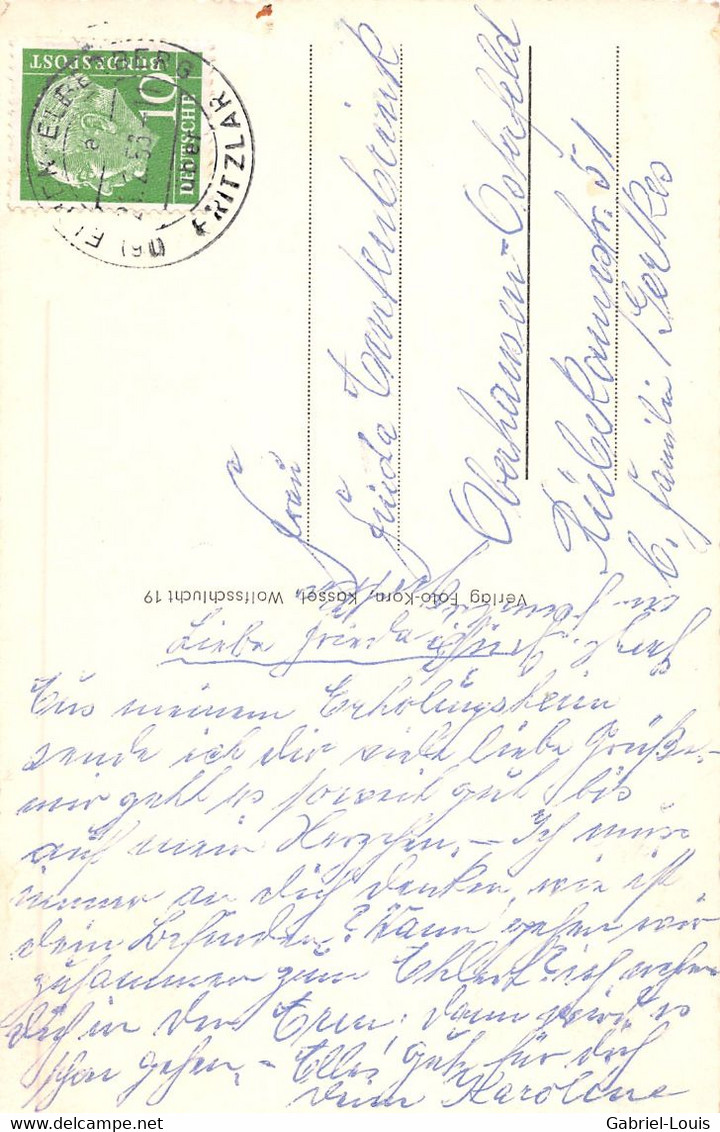 DEUTSCHE
BUNDESPOST
10
ELBENBERG
über FRITZLAR
Frau
Frieda
Oberhausen-Osterfeld
Rübekampstr. 51
b. Familie Gerkes
Verlag Foto-Korn, Kassel, Wolfsschlucht 19
Liebe Frieda
Aus meinem Erholungsheim
sende ich dir viele liebe Grüße,
mir geht es soweit gut bis
auf mein Herzchen. – Ich muss
immer an dich denken, wie ist
dein Befinden? Wann gehen wir
zusammen zum ich nehme
dich in den Arm, dann wird es
schon gehen. – Alles gute für dich
dein Karoline
Gabriel-Louis